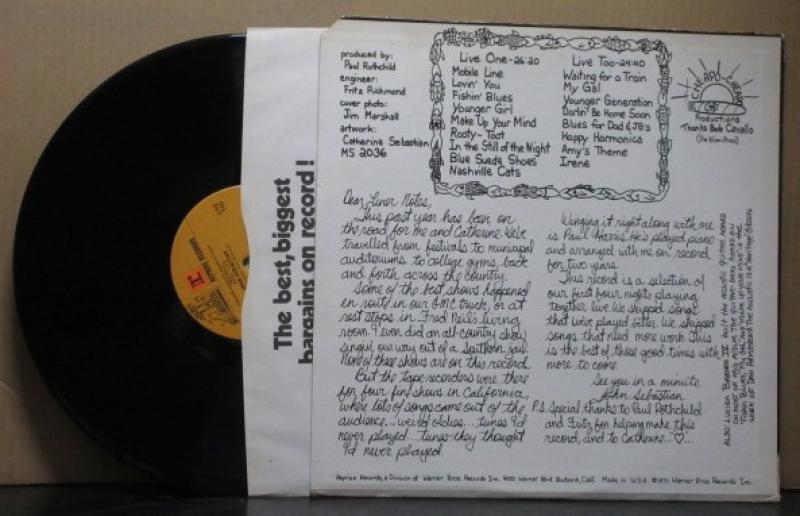 produced by:
Paul Rothchild
engineer:
Fritz Richmond
cover photo:
Jim Marshall
artwork:
Catherine Sebastian
MS 2036
Live One-26:20
Mobile Line
Lovin' You
Fishin' Blues
Younger Girl
Make Up Your Mind
Rooty-Toot
In the Still of the Night
Blue Suede Shoes
Nashville Cats
Live Too-24:40
Waiting for a Train
My Gal
Younger Generation
Darlin' Be Home Soon
Blues for Dad & JB's
Happy Harmonica
Amy's Theme
Irene
CHEAPO CHEAPO
Productions
Thanks Bob Cavallo
The best, biggest
bargains on record!
Dear Liner Notes,
This past year has been on
the road for me and Catherine. We've
travelled from festivals to municipal
auditoriums to college gyms, back
and forth across the country.
Some of the best shows happened
en route in our GMC truck, or at
rest stops in Fred Neil's living
room. I even did an all-country show
singin' our way out of a Southern jail.
None of these shows are on this record.
But the tape recorders were there
for four fine shows in California,
where lots of songs came out of the
audience... weird oldies... tunes I'd
never played... tunes they thought
I'd never played.
Winging it right along with me
is Paul Harris. He's played piano
and arranged with me on record
for two years.
This record is a selection of
our first four nights playing
together live. We skipped songs
that we've played better. We skipped
songs that need more work. This
is the best of those good times with
more to come.
See you in a minute,
John Sebastian
P.S. Special thanks to Paul Rothchild
and Fritz for helping make this
record, and to Catherine...♡...
Reprise Records, a Division of Warner Bros. Records Inc. 4000 Warner Blvd. Burbank, Calif. Made in U.S.A. © 1971 Warner Bros. Records Inc.